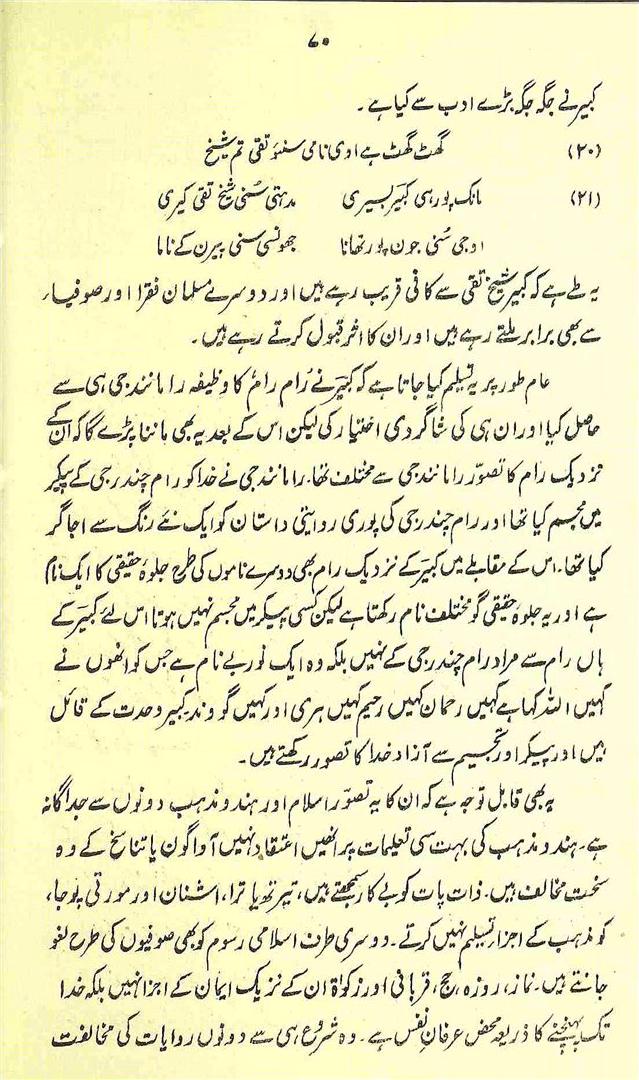 ۷۰
کبیر نے جگہ جگہ بڑے ادب سے کیا ہے۔
(۲۰) گھٹ گھٹ ہے اوی نامی سنئو تقی تم شیخ
(۲۱) مانک پور ہی کبیر بسیری مدہتی سُنی شیخ تقی کیری
اوجی سُنی جون پور تھانا جھونسی سنی پیرن کے ناما
یہ طے ہے کہ کبیر شیخ تقی سے کافی قریب رہے ہیں اور دوسرے مسلمان فقرا اور صوفیاء
سے بھی برابر ملتے رہے ہیں اور ان کا اثر قبول کرتے رہے ہیں۔
عام طور پر یہ تسلیم کیا جاتا ہے کہ کبیر نے رام رام کا وظیفہ رامانند جی ہی سے
حاصل کیا اور ان ہی کی شاگردی اختیار کی لیکن اس کے بعد یہ بھی ماننا پڑے گا کہ ان کے
نزدیک رام کا تصوّر رامانند جی سے مختلف تھا۔ رامانند جی نے خدا کو رام چندر جی کے پیکر
میں مجسم کیا تھا اور رام چندر جی کی پوری روایتی داستان کو ایک نئے رنگ سے اجاگر
کیا تھا۔ اس کے مقابلے میں کبیر کے نزدیک رام بھی دوسرے ناموں کی طرح جلوۂ حقیقی کا ایک نام
ہے اور یہ جلوہ حقیقی گو مختلف نام رکھتا ہے لیکن کسی پیکر میں مجسم نہیں ہوتا اس لئے کبیر کے
ہاں رام سے مراد رام چندر جی کے نہیں بلکہ وہ ایک نور بے نام ہے جس کو انھوں نے
کہیں اللہ کہا ہے کہیں رحمان کہیں رحیم کہیں ہری اور کہیں گووند۔ کبیر وحدت کے قائل
ہیں اور پیکر اور تجسیم سے آزاد خدا کا تصور رکھتے ہیں۔
یہ بھی قابل توجہ ہے کہ ان کا یہ تصوّر اسلام اور ہندو مذہب دونوں سے جداگانہ
ہے۔ ہندو مذہب کی بہت سی تعلیمات پر انھیں اعتقاد نہیں آواگون یا تناسخ کے وہ
سخت مخالف ہیں۔ ذات پات کو بے کار سمجھتے ہیں، تیرتھ یاترا، اشنان اور مورتی پوجا،
کو مذہب کے اجزا تسلیم نہیں کرتے۔ دوسری طرف اسلامی رسوم کو بھی صوفیوں کی طرح لغو
جانتے ہیں۔ نماز، روزہ، حج، قربانی اور زکوٰۃ ان کے نزیک ایمان کے اجزا نہیں بلکہ خدا
تک پہنچنے کا ذریعہ محض عرفانِ نفس ہے۔ وہ شروع ہی سے دونوں روایات کی مخالفت